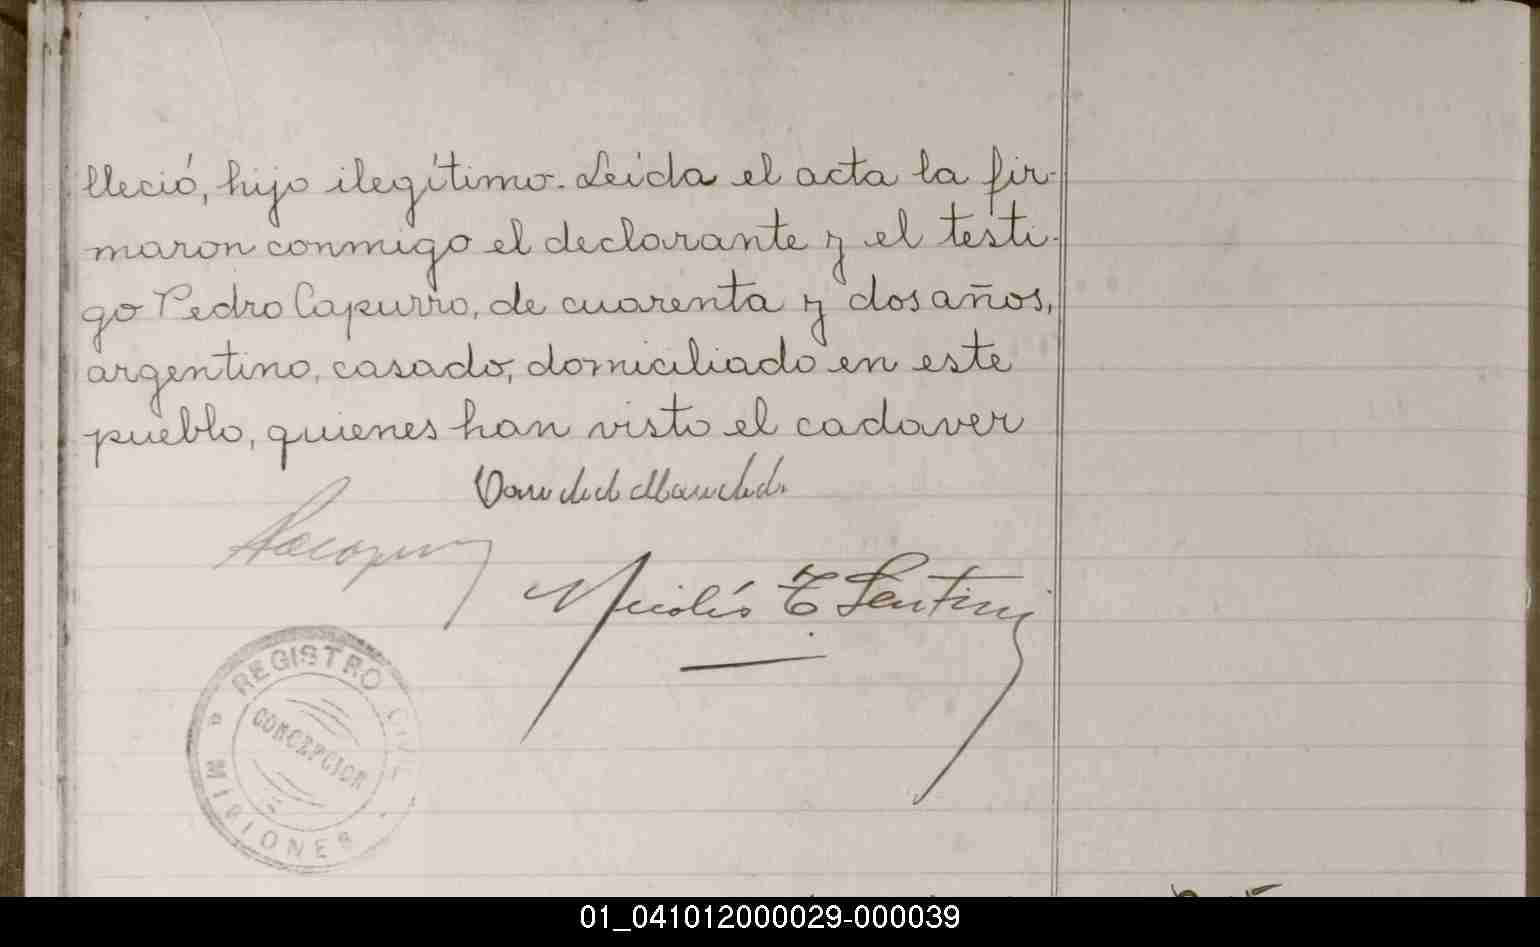 lleció, hijo ilegítimo. Leída el acta la fir-
maron conmigo el declarante y el testi-
go Pedro Capurro, de cuarenta y dos años,
argentino, casado, domiciliado en este
pueblo, quienes han visto el cadaver
Nicolás T Sentini
REGISTRO CIVIL
CONCEPCION
MISIONES
01_041012000029-000039